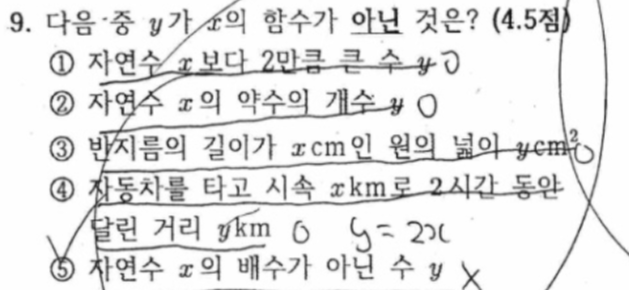 9. 다음 중 y가 x의 함수가 아닌 것은? (4.5점)
① 자연수 x보다 2만큼 큰 수 y O
② 자연수 x의 약수의 개수 y O
③ 반지름의 길이가 xcm인 원의 넓이 ycm² O
④ 자동차를 타고 시속 xkm로 2시간 동안
달린 거리 ykm O y=2x
⑤ 자연수 x의 배수가 아닌 수 y X